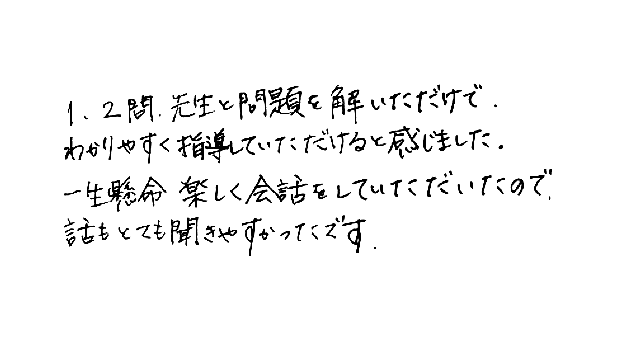 1、2問、先生と問題を解いただけで、
わかりやすく指導していただけると感じました。
一生懸命 楽しく会話をしていただいたので、
話もとても聞きやすかったです。